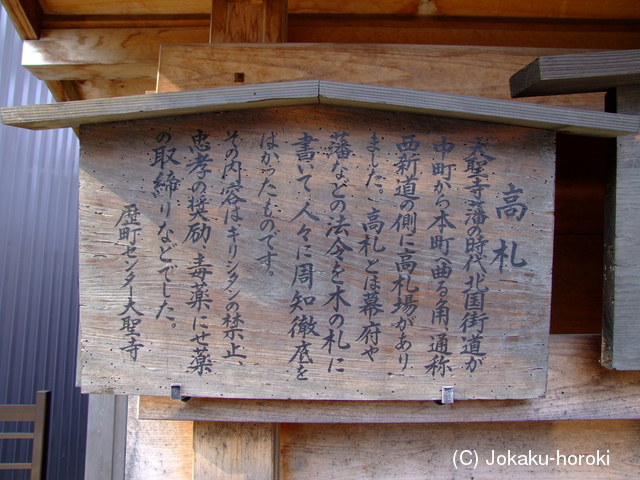 高札
大聖寺藩の時代、北国街道が
中町から本町へ曲る角、通称
西新道の側に高札場があり
ました。高札とは幕府や
藩などの法令を木の札に
書いて人々に周知徹底を
はかったものです。
その内容はキリシタンの禁止、
忠孝の奨励、毒薬にせ薬
の取締りなどでした。
歴町センター大聖寺
(C) Jokaku-horoki